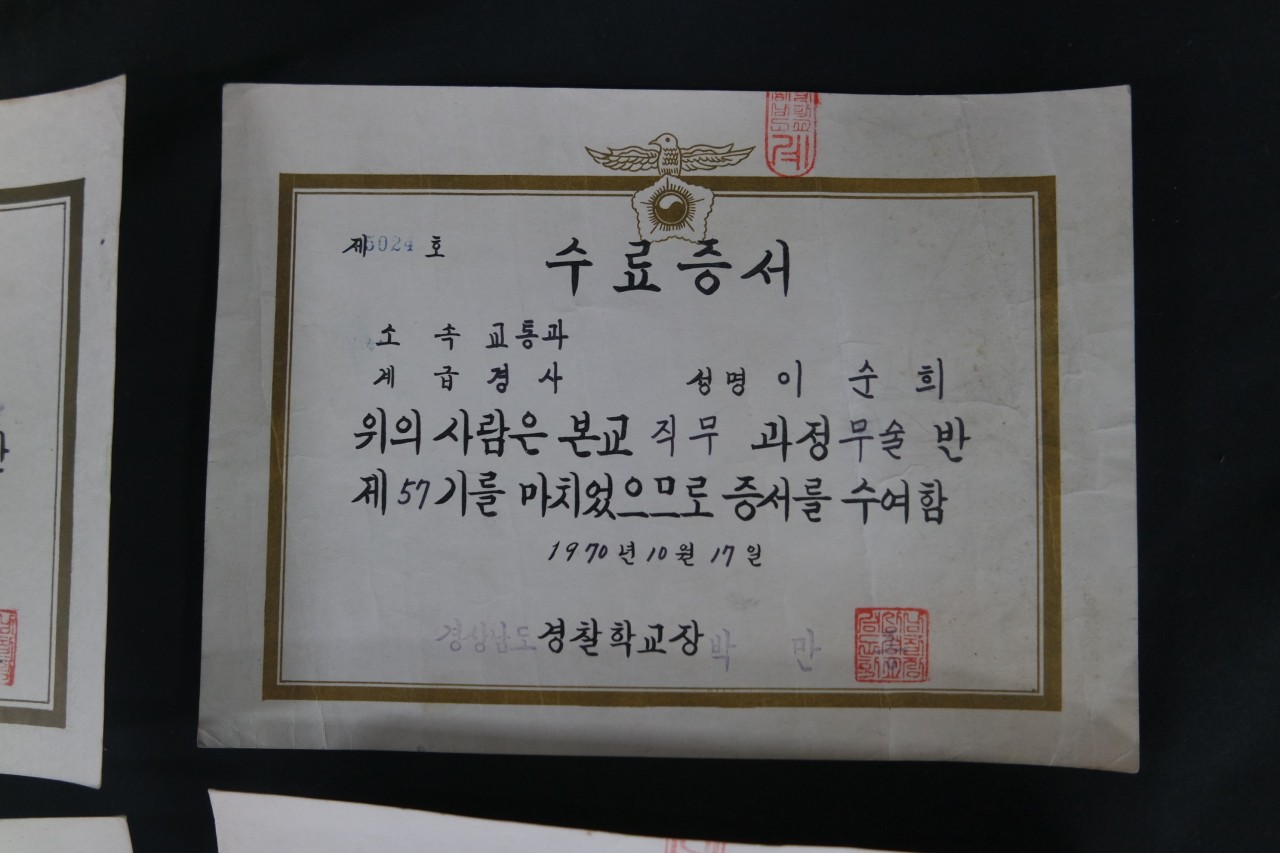 제 5024 호
수료증서
소 속 교통과
계 급 경 사 성명 이 순 희
위의 사람은 본교 직무 과정 무술 반
제 57 기를 마치었으므로 증서를 수여함
1970 년 10 월 17 일
경상남도 경찰학교장 박 만
계